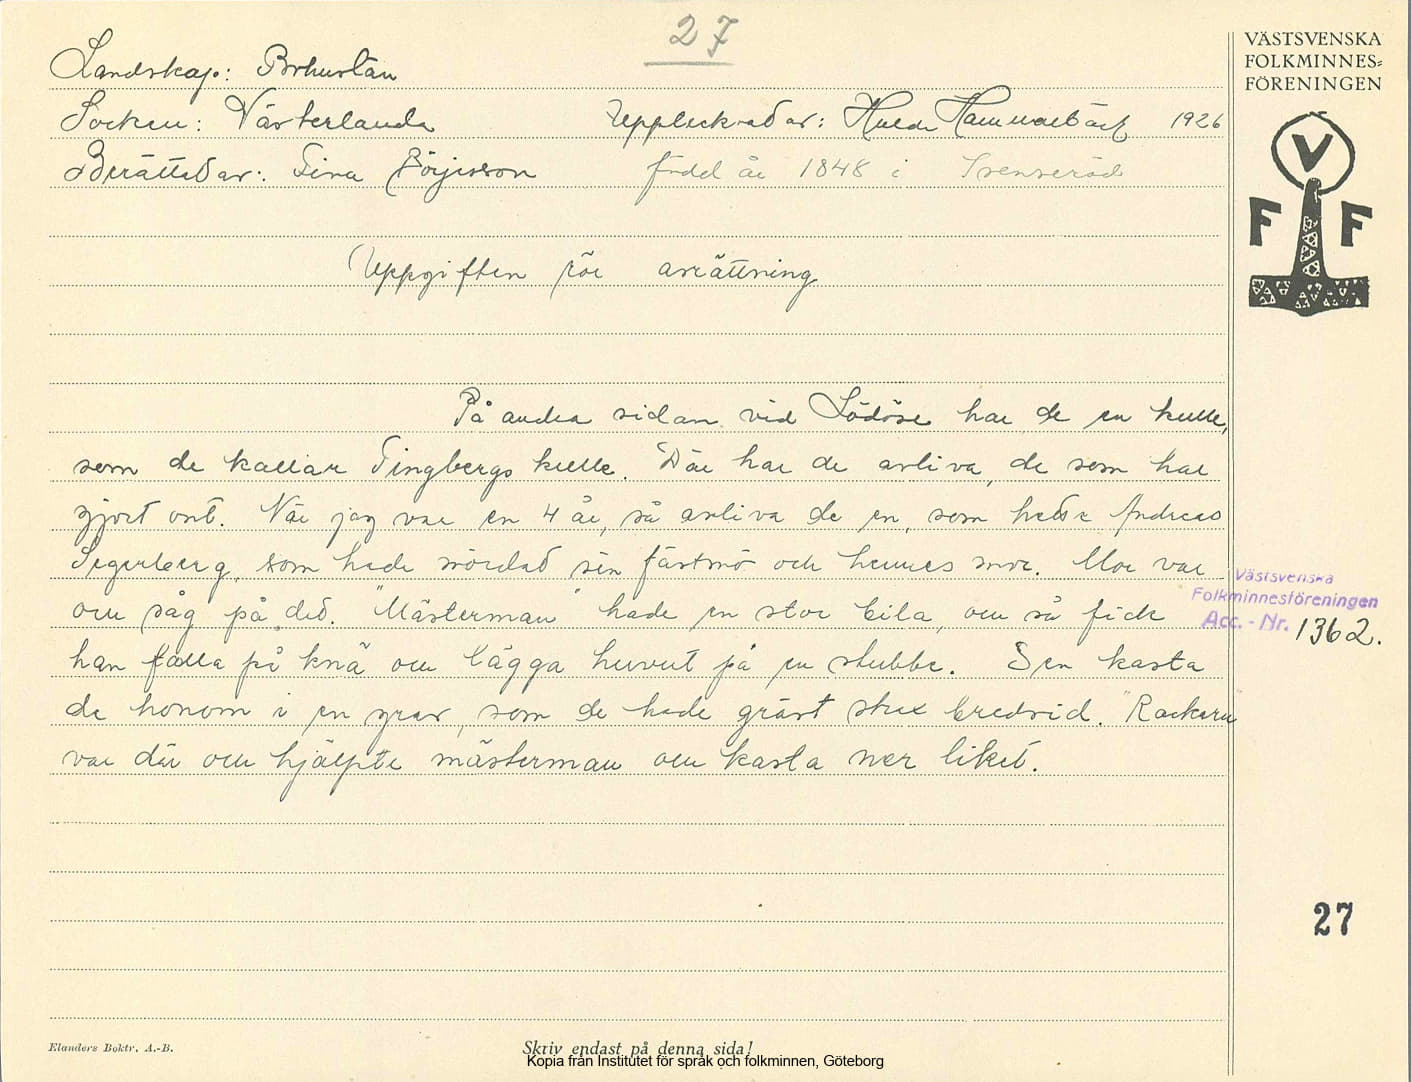 27
VÄSTSVENSKA
FOLKMINNES=
FÖRENINGEN
V
F F
Landskap: Bohuslän
Socken: Västerlanda Upptecknad av: Hulda Hammarbäck 1926
Berättad av: Tina Börjesson född år 1848 i Svenseröd
Uppgiften rör avrättning
På andra sidan vid Lödöse har de en kulle,
som de kallar Tingbergs kulle. Där har de avliva, de som har
gjort ont. När jag var en 4 år, så avliva de en, som hette Andreas
Segerberg, som hade mördad sin fästmö och hennes mor. Mor var
ou såg på ded. "Mästerman" hade en stor bila, ou så fick
han falla på knä ou lägga huvut på en stubbe. Sen kasta
de honom i en grav, som de hade grävt strax bredvid. "Rackarn
var där ou hjälpte mästerman ou kasta ner liket.
Västsvenska
Folkminnesföreningen
Acc. - Nr. 1362.
27
Elanders Boktr. A.-B.
Skriv endast på denna sida!
Kopia från Institutet för språk och folkminnen, Göteborg